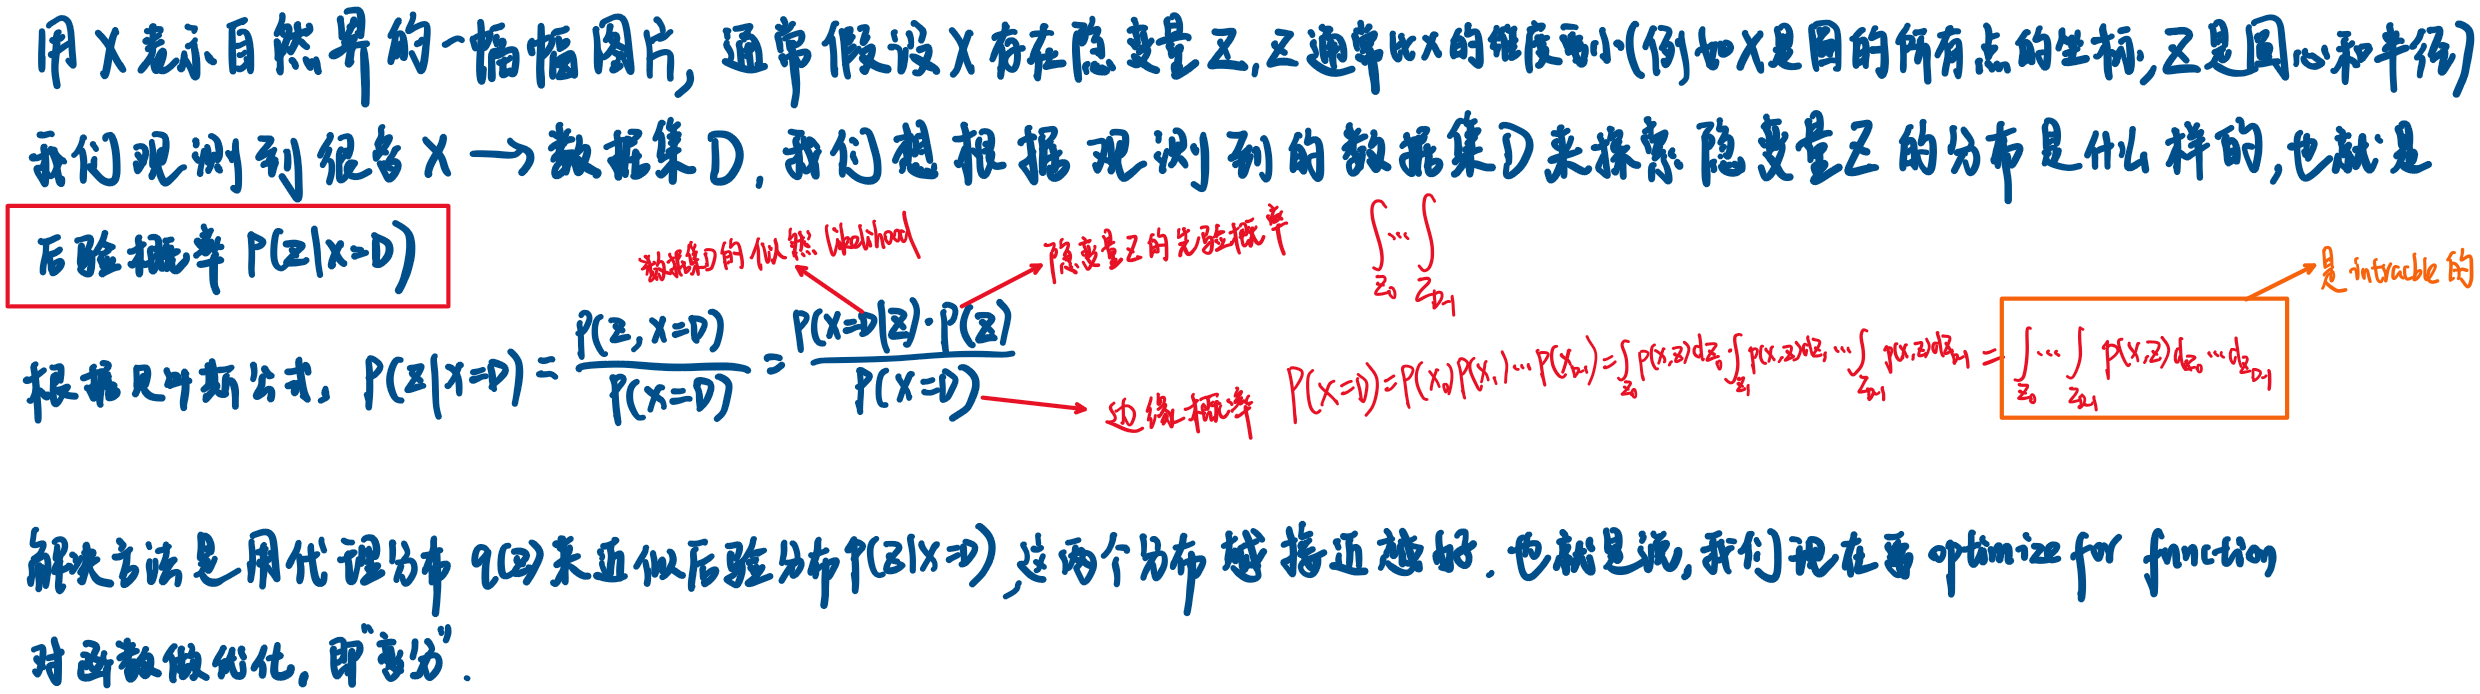 用X表示自然界的一幅幅图片,通常假设X存在隐变量Z,Z通常比X的维度要小(例如X是圆的所有点的坐标,Z是圆心和半径)
我们观测到很多X→数据集D,我们想根据观测到的数据集D来探索隐变量Z的分布是什么样的,也就是
后验概率 P(Z|X=D)
数据集D的似然 likelihood
隐变量Z的先验概率
∫…∫ z₀ z_{D-1}
是 intracble 的
根据贝叶斯公式, P(Z|X=D) = P(Z,X=D) / P(X=D) = P(X=D|Z)·P(Z) / P(X=D)
边缘概率 P(X=D)=P(x₀)P(x₁)…P(x_{D-1})=∫_{z₀}p(x,z)dz₀·∫_{z₁}p(x,z)dz₁…∫_{z_{D-1}}p(x,z)dz_{D-1} = ∫_{z₀}…∫_{z_{D-1}} p(x,z)d_{z₀}…d_{z_{D-1}}
解决方法是用代理分布 q(z)来近似后验分布P(Z|X=D),这两个分布越接近越好.也就是说,我们现在要 optimize for function
对函数做优化,即"变分".